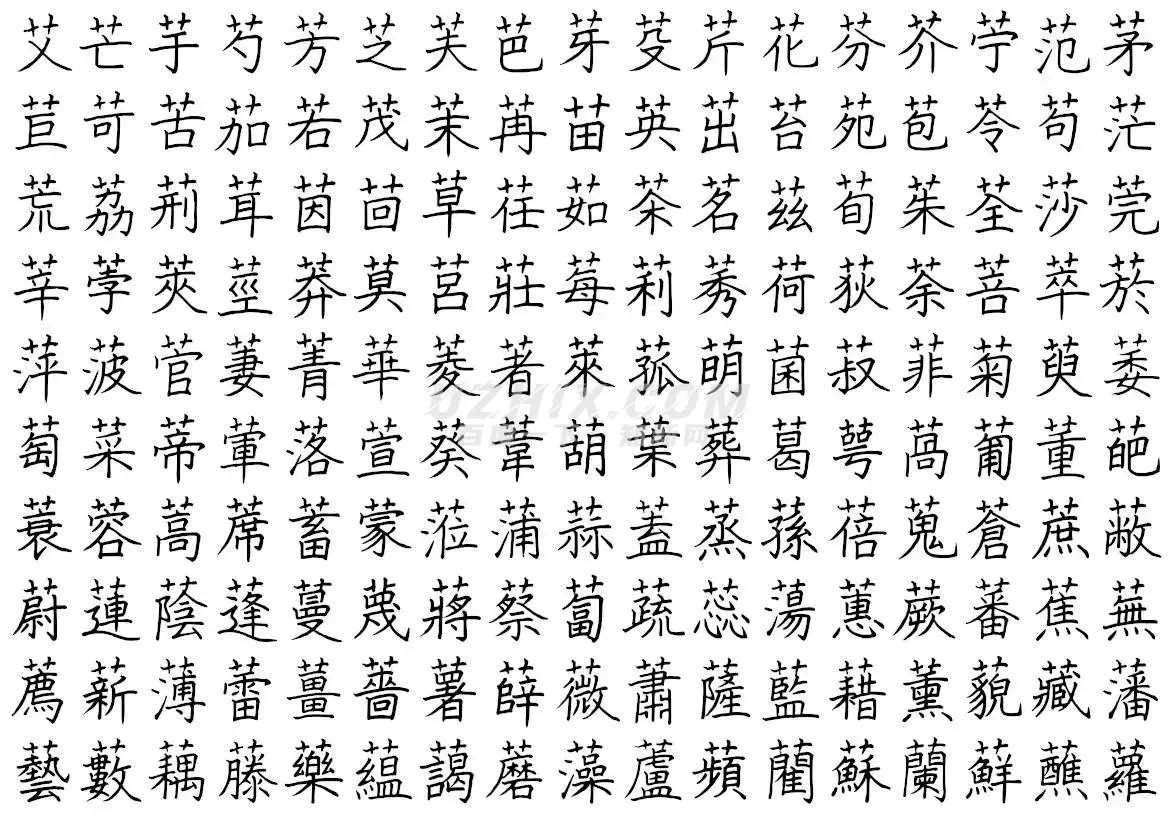 艾芒芋芍芳芝芙芭芽芟芹花芬芥苧范茅
苣苛苦茄若茂茉苒苗英茁苔苑苞苓苟茫
荒荔荊茸茵茴草荏茹茶茗茲荀茱荃莎莞
莘荸莢莖莽莫莒莊莓莉莠荷荻荼菩萃菸
萍菠菅萋菁華菱著萊菰萌菌菽菲菊萸萎
萄菜蒂葷落萱葵葦葫葉葬葛萼萵葡董葩
蓑蓉蒿蓆蓄蒙蒞蒲蒜蓋蒸蓀蓓蒐蒼蔗蔽
蔚蓮蔭蓬蔓蔑蔣蔡蔔蔬蕊蕩蕙蕨蕃蕉蕪
薦薪薄蕾薑薔薯薛薇蕭薩藍藉薰藐藏藩
藝藪藕藤藥蘊藹蘑藻蘆蘋藺蘇蘭蘚蘸蘿
UZHIX.COM